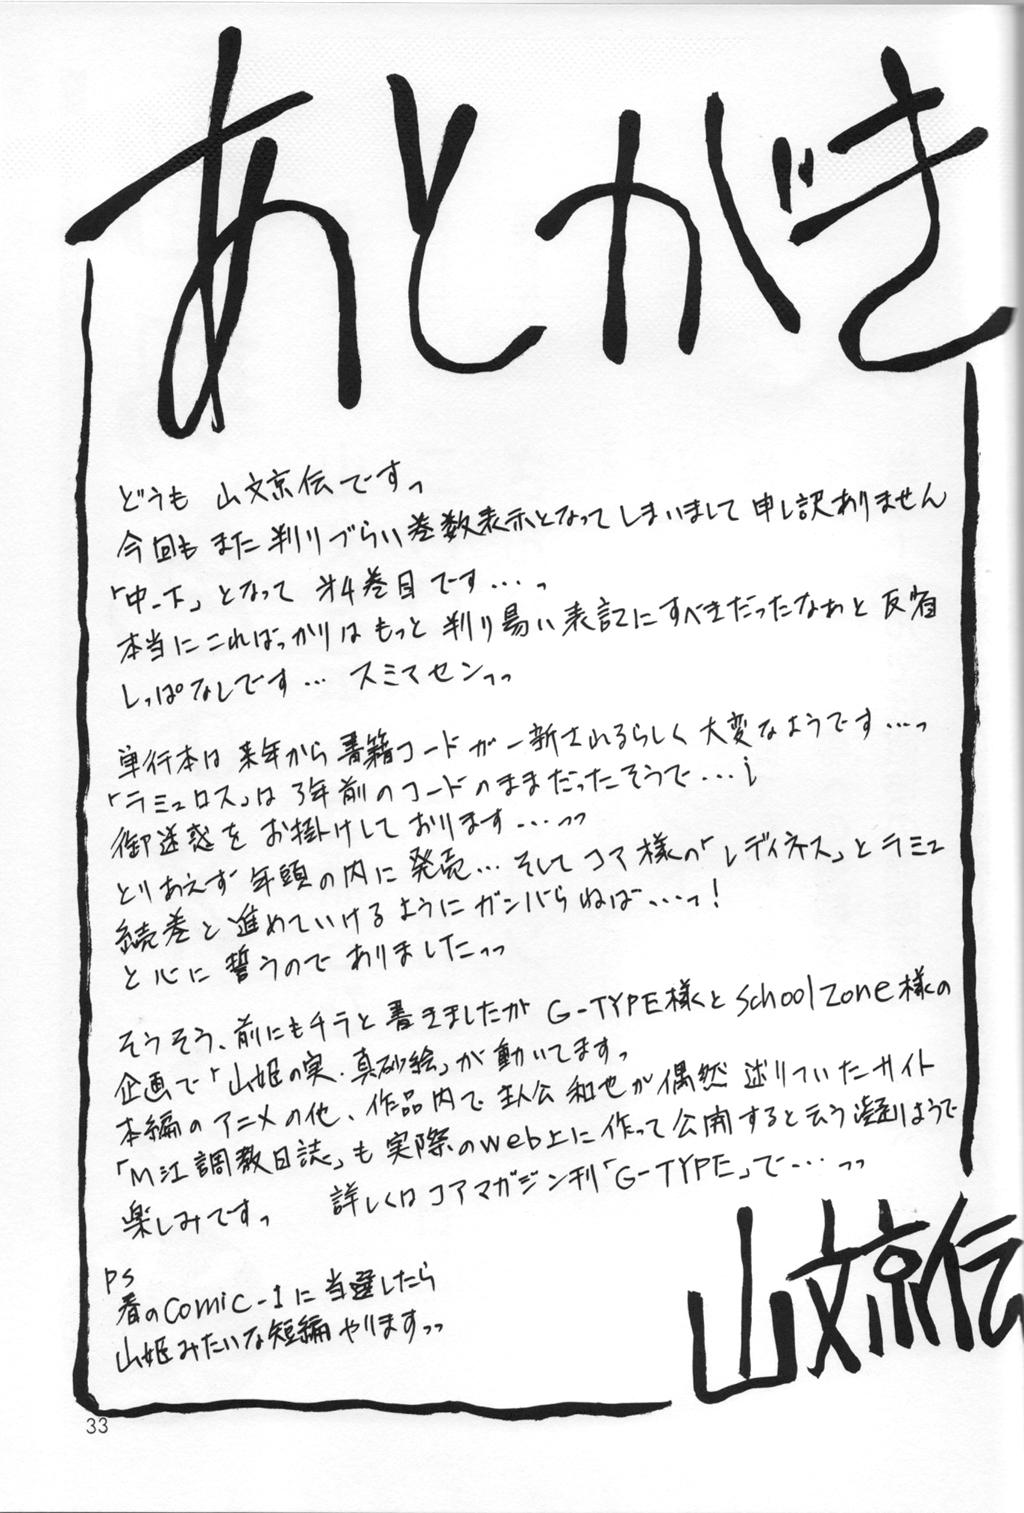 あとがき
どうも 山文京伝ですっ
今回も また 判りづらい巻数表示となってしまいまして 申し訳ありません
「中-下」となって 才4巻目です…っ
本当にこればっかりは もっと 判り易い表記にすべきだったなぁと 反省
しっぱなしです… スミマセンっっ
単行本は 来年から 書籍コードが一新されるらしく 大変なようです…っ
「ラミュロス」は 3年前のコードのままだったそうで…
御迷惑を お掛けしております…っっ
とりあえず 年頭の内に 発売… そして コア様の「レディネス」とラミュ
続巻と 進めていけるように ガンバらねば…っ!
と心に 誓うので ありましたっっ
そうそう、前にもチラと 書きましたが G-TYPE様と Schoolzone様の
企画で「山姫の実・真砂絵」が 動いてますっ
本編の アニメの他、作品内で 主人公 和也が 偶然 辿りついたサイト
「M江調教日誌」も 実際のweb上に 作って 公開すると云う凝りようで
楽しみですっ 詳しくは コアマガジン刊「G-TYPE」で…っっ
PS
春のComic-1に 当選したら
山姫みたいな短編 やりますっっ
山文京伝
33